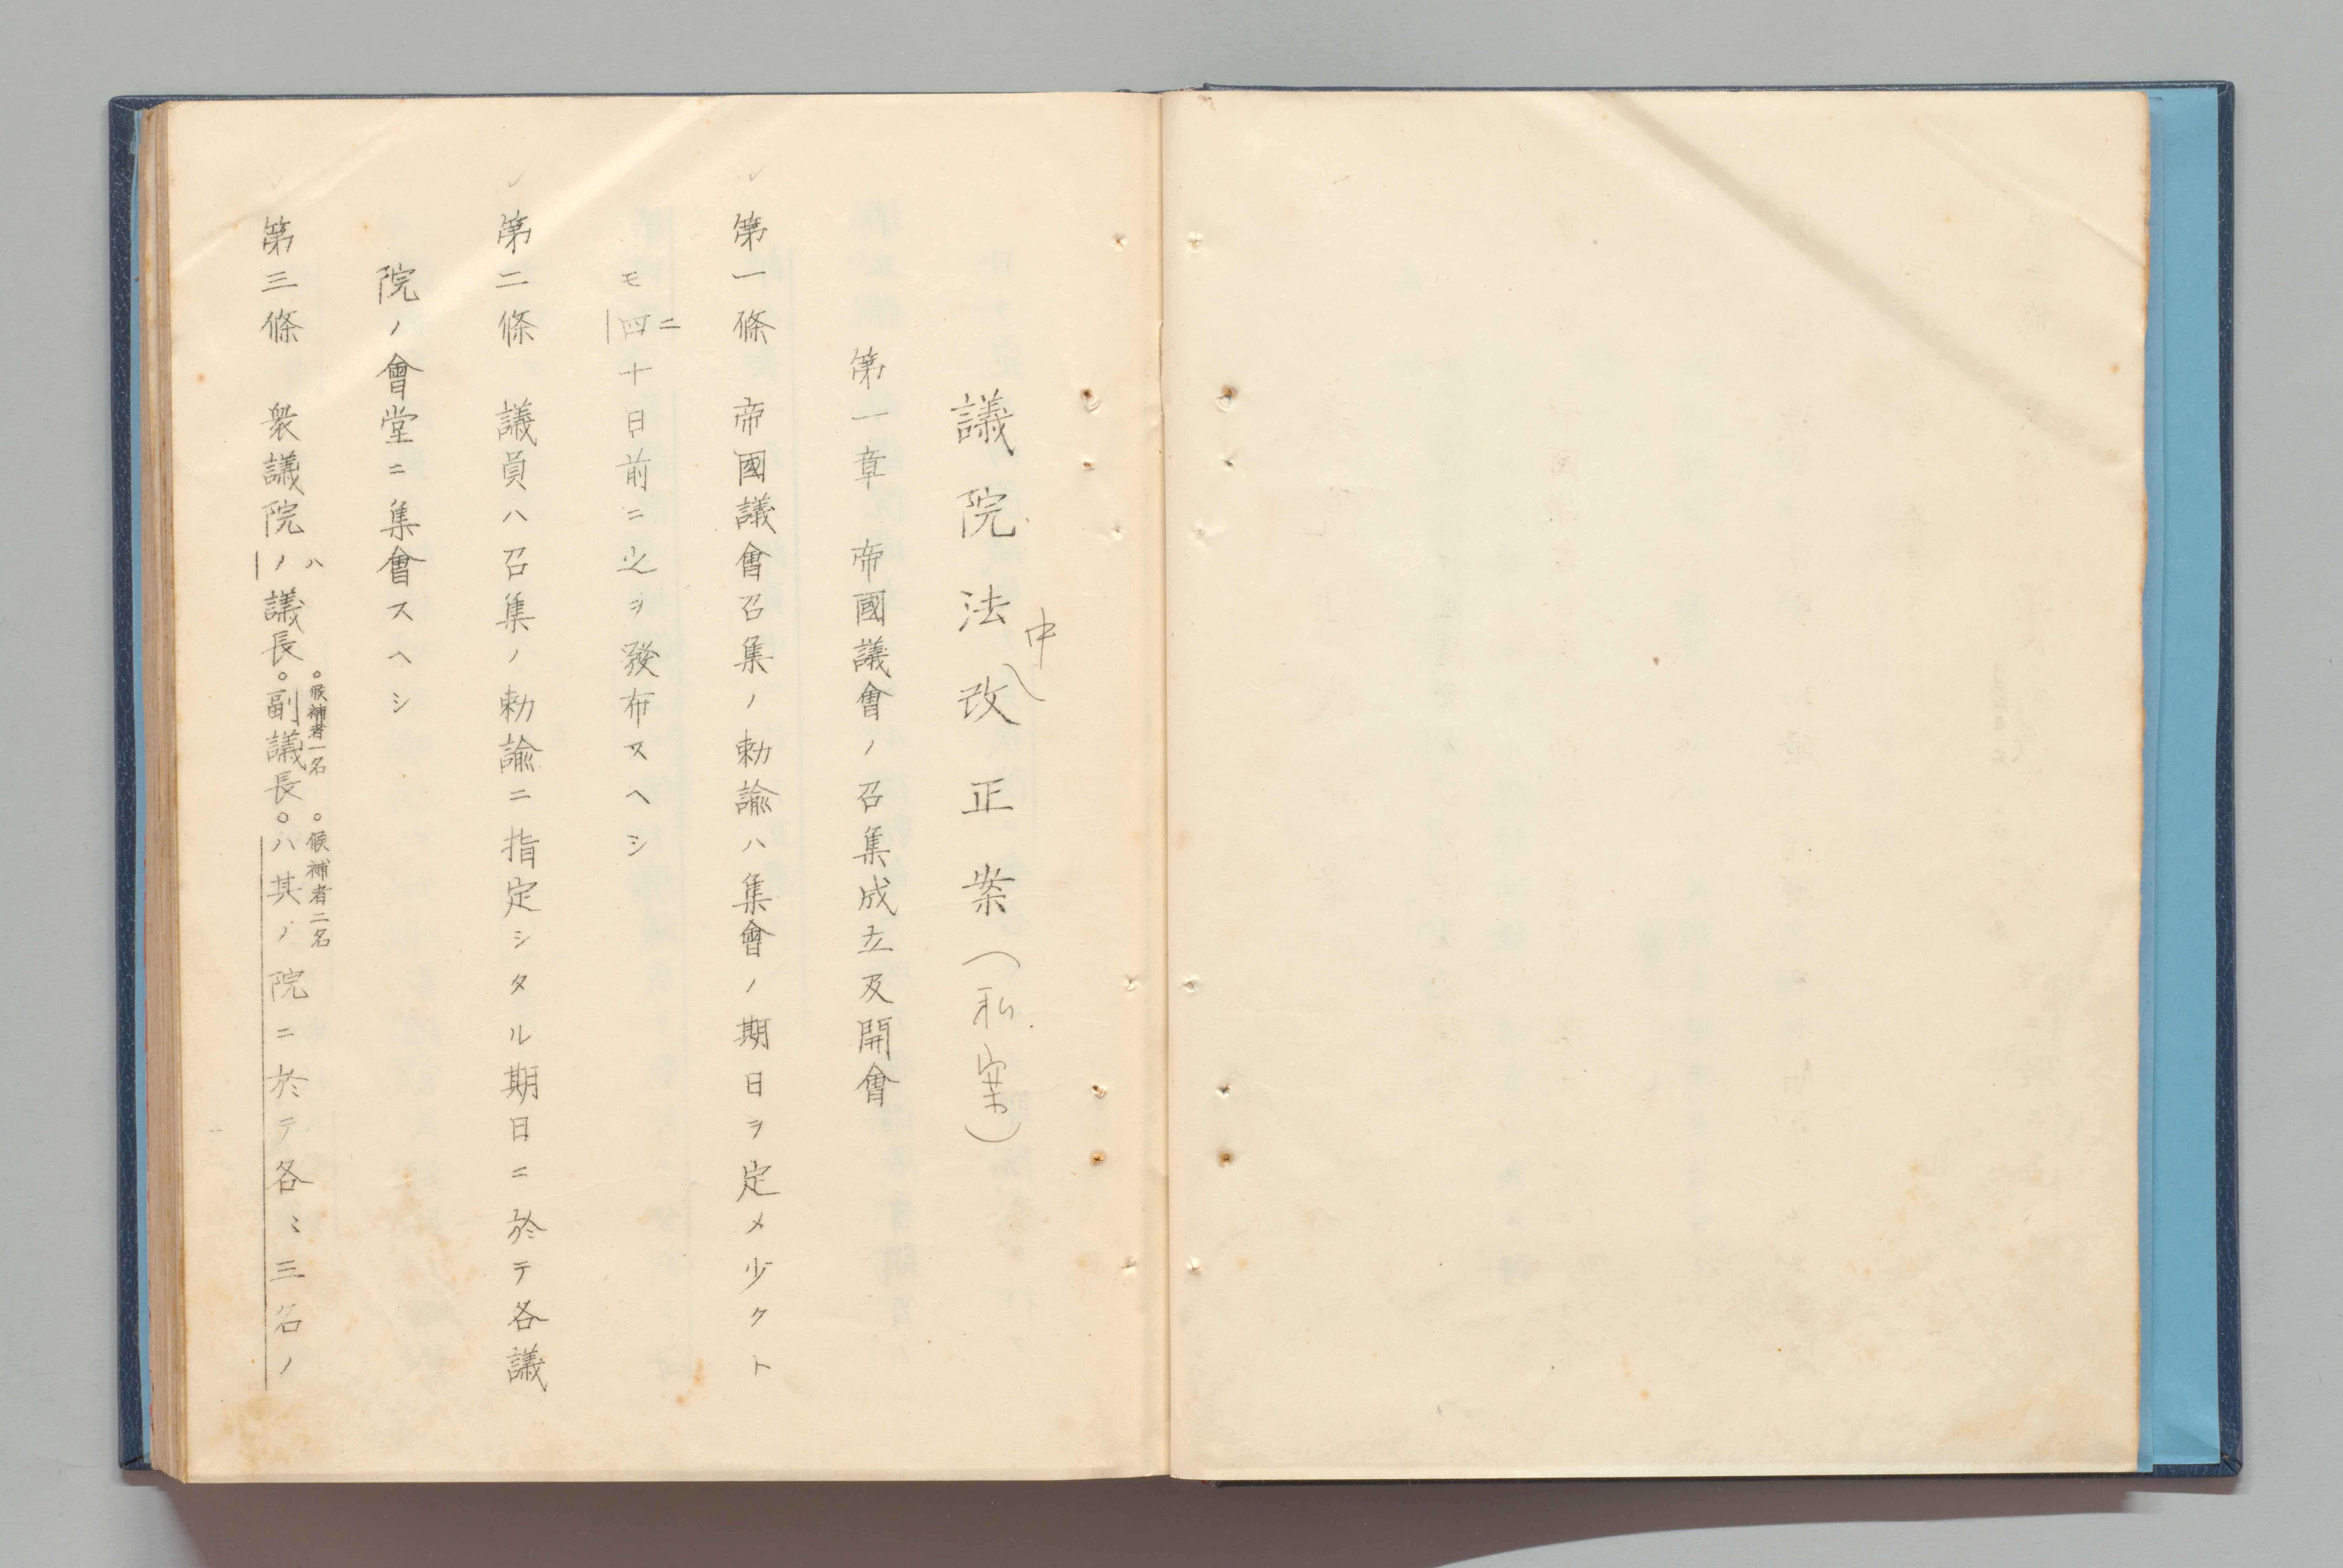 議院法中改正案（私案）
第一章 帝國議會ノ召集成立及開會
第一條 帝國議會召集ノ勅諭ハ集會ノ期日ヲ定メ少クト
ニ
モ四十日前ニ之ヲ發布スヘシ
第二條 議員ハ召集ノ勅諭ニ指定シタル期日ニ於テ各議
院ノ會堂ニ集會スヘシ
ハ 。候補者一名 。候補者二名
第三條 衆議院ノ議長。副議長。ハ其ノ院ニ於テ各〻三名ノ